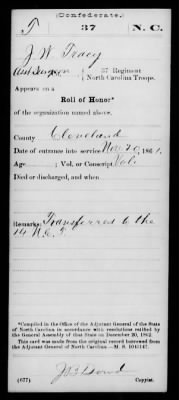 (Confederate.)
T 37 N.C.
J. W. Tracy
Asst Surgeon, 37 Regiment
North Carolina Troops.
Appears on a
Roll of Honor*
of the organization named above.
County Cleveland
Date of entrance into service Nov 20, 1861.
Age ; Vol. or Conscript Vol.
Died or discharged, and when
Remarks: Transferred to the
14 N.C.T.
*Compiled in the Office of the Adjutant General of the State
of North Carolina in accordance with resolutions ratified by
the General Assembly of that State on December 20, 1862.
This card was made from the original record borrowed from
the Adjutant General of North Carolina.—M. S.
(677) Copyist.